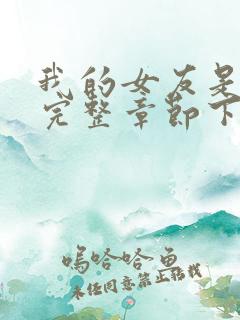 我的女友是
完整章節下
嗚哈哈魚
未经同意禁止转载